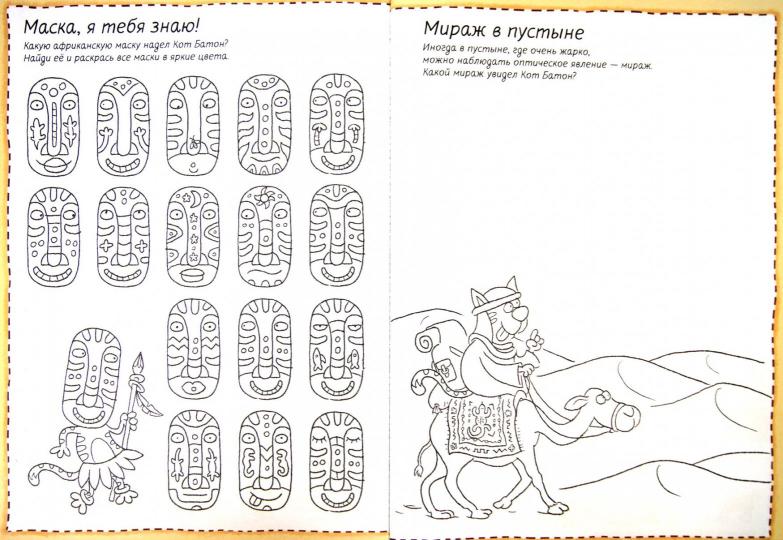 Маска, я тебя знаю!
Какую африканскую маску надел Кот Батон?
Найди её и раскрась все маски в яркие цвета.
Мираж в пустыне
Иногда в пустыне, где очень жарко,
можно наблюдать оптическое явление — мираж.
Какой мираж увидел Кот Батон?